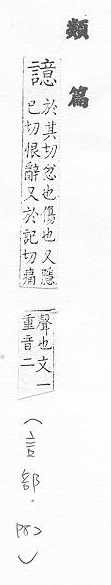 類篇
譩
於其切忿也傷也又隱
已切恨辭又於記切痛
聲也文一
重音二
(言部. P82)